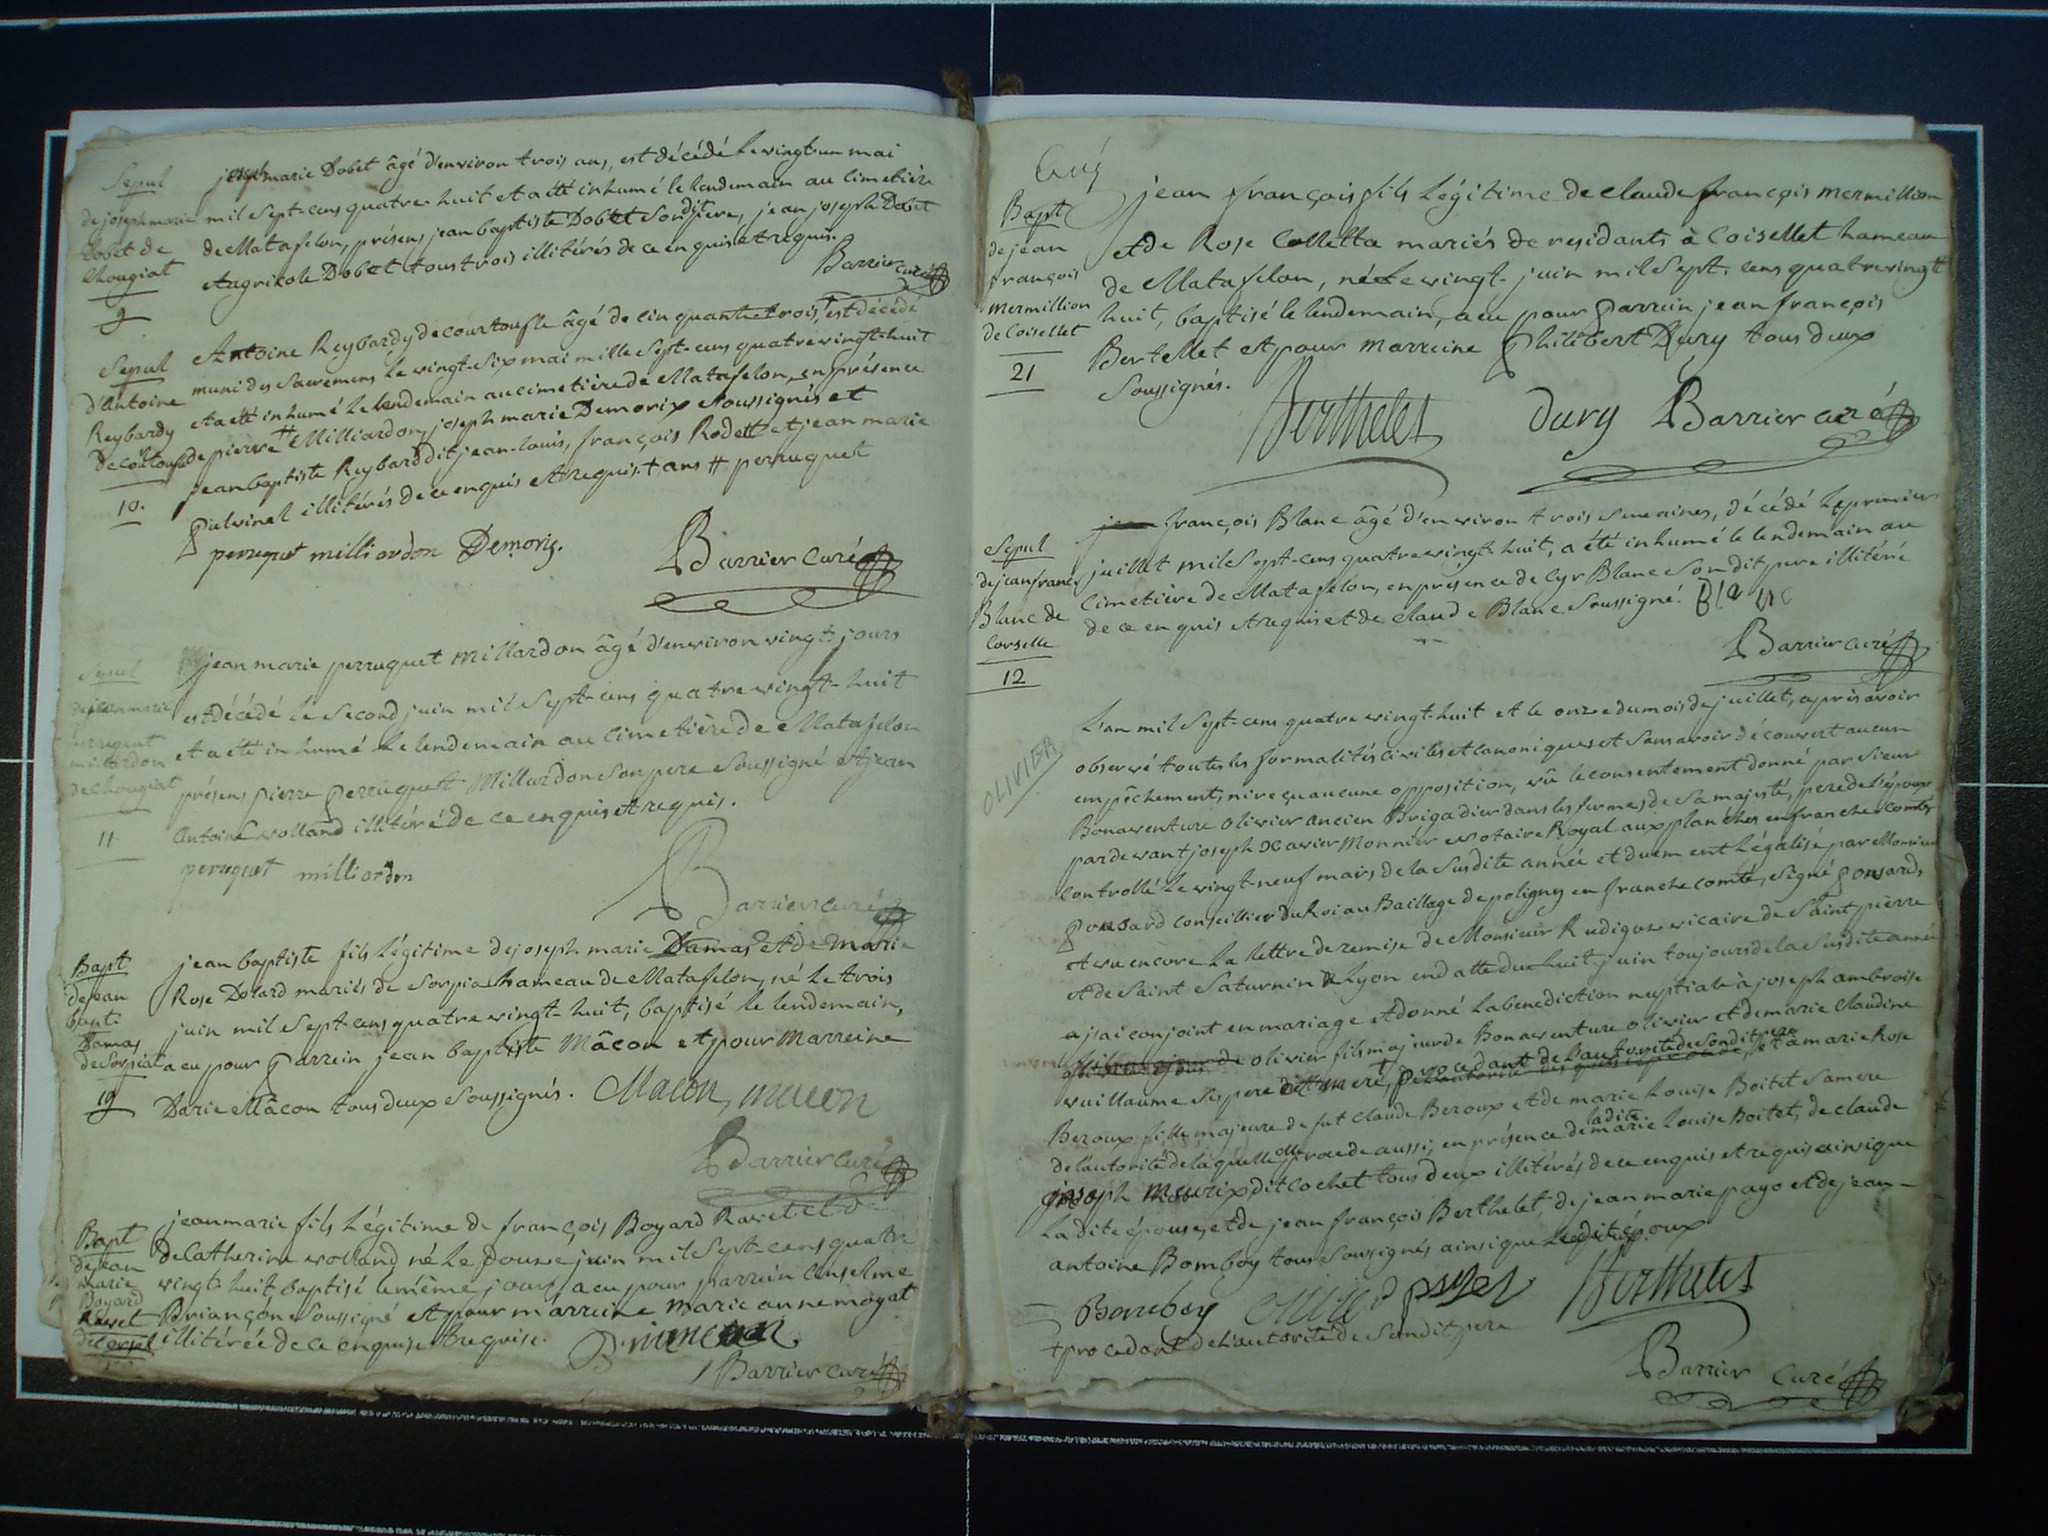 Sepul
de joseph marie
Dobet de
Chougiat
9
joseph marie Dobet âgé d'environ trois ans, est décédé le vingt-un mai
mil sept-cens quatre huit et a été inhumé le lendemain au cimetière
de Matafelon, présens jean baptiste Dobet son dit pere, jean joseph Dobet
et agrikole Dobet tous trois illitérés de ce enquis et requis.
Barrier curé
Sepul
d'antoine
Reybardy
de courtoufle
10.
Antoine Reybardy de courtoufle âgé de cinquante trois +, est décédé
muni des sacremens le vingt-six mai mille sept-cens quatre vingt-huit
et a été inhumé le lendemain au cimetière de Matafelon, en présence
de pierre # Milliardon, joseph marie Demorix soussignés et
jean baptiste Reybard dit jean-louis, françois Rodet et jean marie
pulvinel illitérés de ce enquis et requis. + ans # perruquet
perruquet milliordon Demorix.
Barrier curé
Sepul
de jean marie
perruquet
millardon
de chougiat
11
jean marie perruquet Millardon âgé d'environ vingt jours
est décédé le second juin mil sept-cens quatre vingt-huit
et a été inhumé le lendemain au cimetière de Matafelon
présens pierre perruquet Millardon son pere soussigné et jean
antoine volland illitéré de ce enquis et requis.
perruquet milliordon
Barrier curé
Bapt
de jean
bapt.
Damas
de Sorpiat
19
jean baptiste fils légitime de joseph marie Damas et de Marie
Rose Dotard mariés de Sorpia hameau de Matafelon, né le trois
juin mil sept-cens quatre vingt-huit, baptisé le lendemain,
a eu pour parrein jean baptiste Mâcon et pour Marreine
Darie Mâcon tous deux soussignés. Macon, macon
Barrier curé
Bapt
de jean
marie
Boyard
Ravet
jean marie fils légitime de françois Boyard Ravet et d
de Catherine volland né le douze juin mil sept-cens quatre
vingt huit, baptisé le même jour, a eu pour parrein anselme
Briançon soussigné et pour marreine marie anne mogat
illitérée de ce enquise et requise. Briancon
Barrier curé
Bapt
de jean
françois
Mermillion
de Coisellet
21
jean françois fils légitime de claude françois Mermillion
et de Rose Colletta mariés de residants à Coisellet hameau
de Matafelon, né le vingt juin mil sept-cens quatre vingt
huit, baptisé le lendemain, a eu pour parrein jean françois
Bertellet et pour marreine philibert Dury tous deux
soussignés.
Berthelet Dury Barrier curé
Sepul
de jean franc.
Blanc de
Corselle
12
françois Blanc âgé d'environ trois semaines, décédé le premier
juillet mil sept-cens quatre vingt huit, a été inhumé le lendemain au
cimetière de Matafelon, en présence de Cyr Blanc son dit pere illitéré
de ce enquis et requis et de claude Blanc soussigné. Blanc
Barrier curé
OLIVIER
L'an mil sept-cens quatre vingt-huit et le onze du mois de juillet, après avoir
observé toutes les formalités civiles et canoniques et sans avoir découvert aucun
empêchement, ni reçu aucune opposition, vû le consentement donné par sieur
Bonaventure Olivier ancien Brigadier dans les fermes de sa majesté, pere de l'époux
par devant joseph Xavier Monnier Notaire Royal aux planches en franche comté
controllé le vingt-neuf mars de la susdite année et duement légalisé par Monsieur
ponsard conseillier du Roi au Baillage de poligny en franche comté, signé ponsard,
et vu encore la lettre de remise de Monsieur Rudigoz vicaire de Saint pierre
et de Saint Saturnin de Lyon en datte du huit juin toujours de la susdite année
a j'ai conjoint en mariage et donné la benediction nuptiale à joseph ambroise
olivier fils majeur de Bonaventure olivier et de marie claudine
vuillaume ses pere et mere, + procedant de l'autorité de son dit pere, et à marie Rose
Beroux fille majeure de fut claude Beroux et de marie Louise Boitet sa mere
de l'autorité de laquelle elle procede aussi, en présence de ladite marie Louise Boitet, de claude
joseph Meurix dit cochet tous deux illitérés de ce enquis et requis ainsi que
la dite épouse, et de jean françois Berthelet, de jean marie payo et de jean-
antoine Bomboy tous soussignés ainsi que ledit époux
Bomboy olivier payet Berthelet
+ procedant de l'autorité de son dit pere
Barrier curé